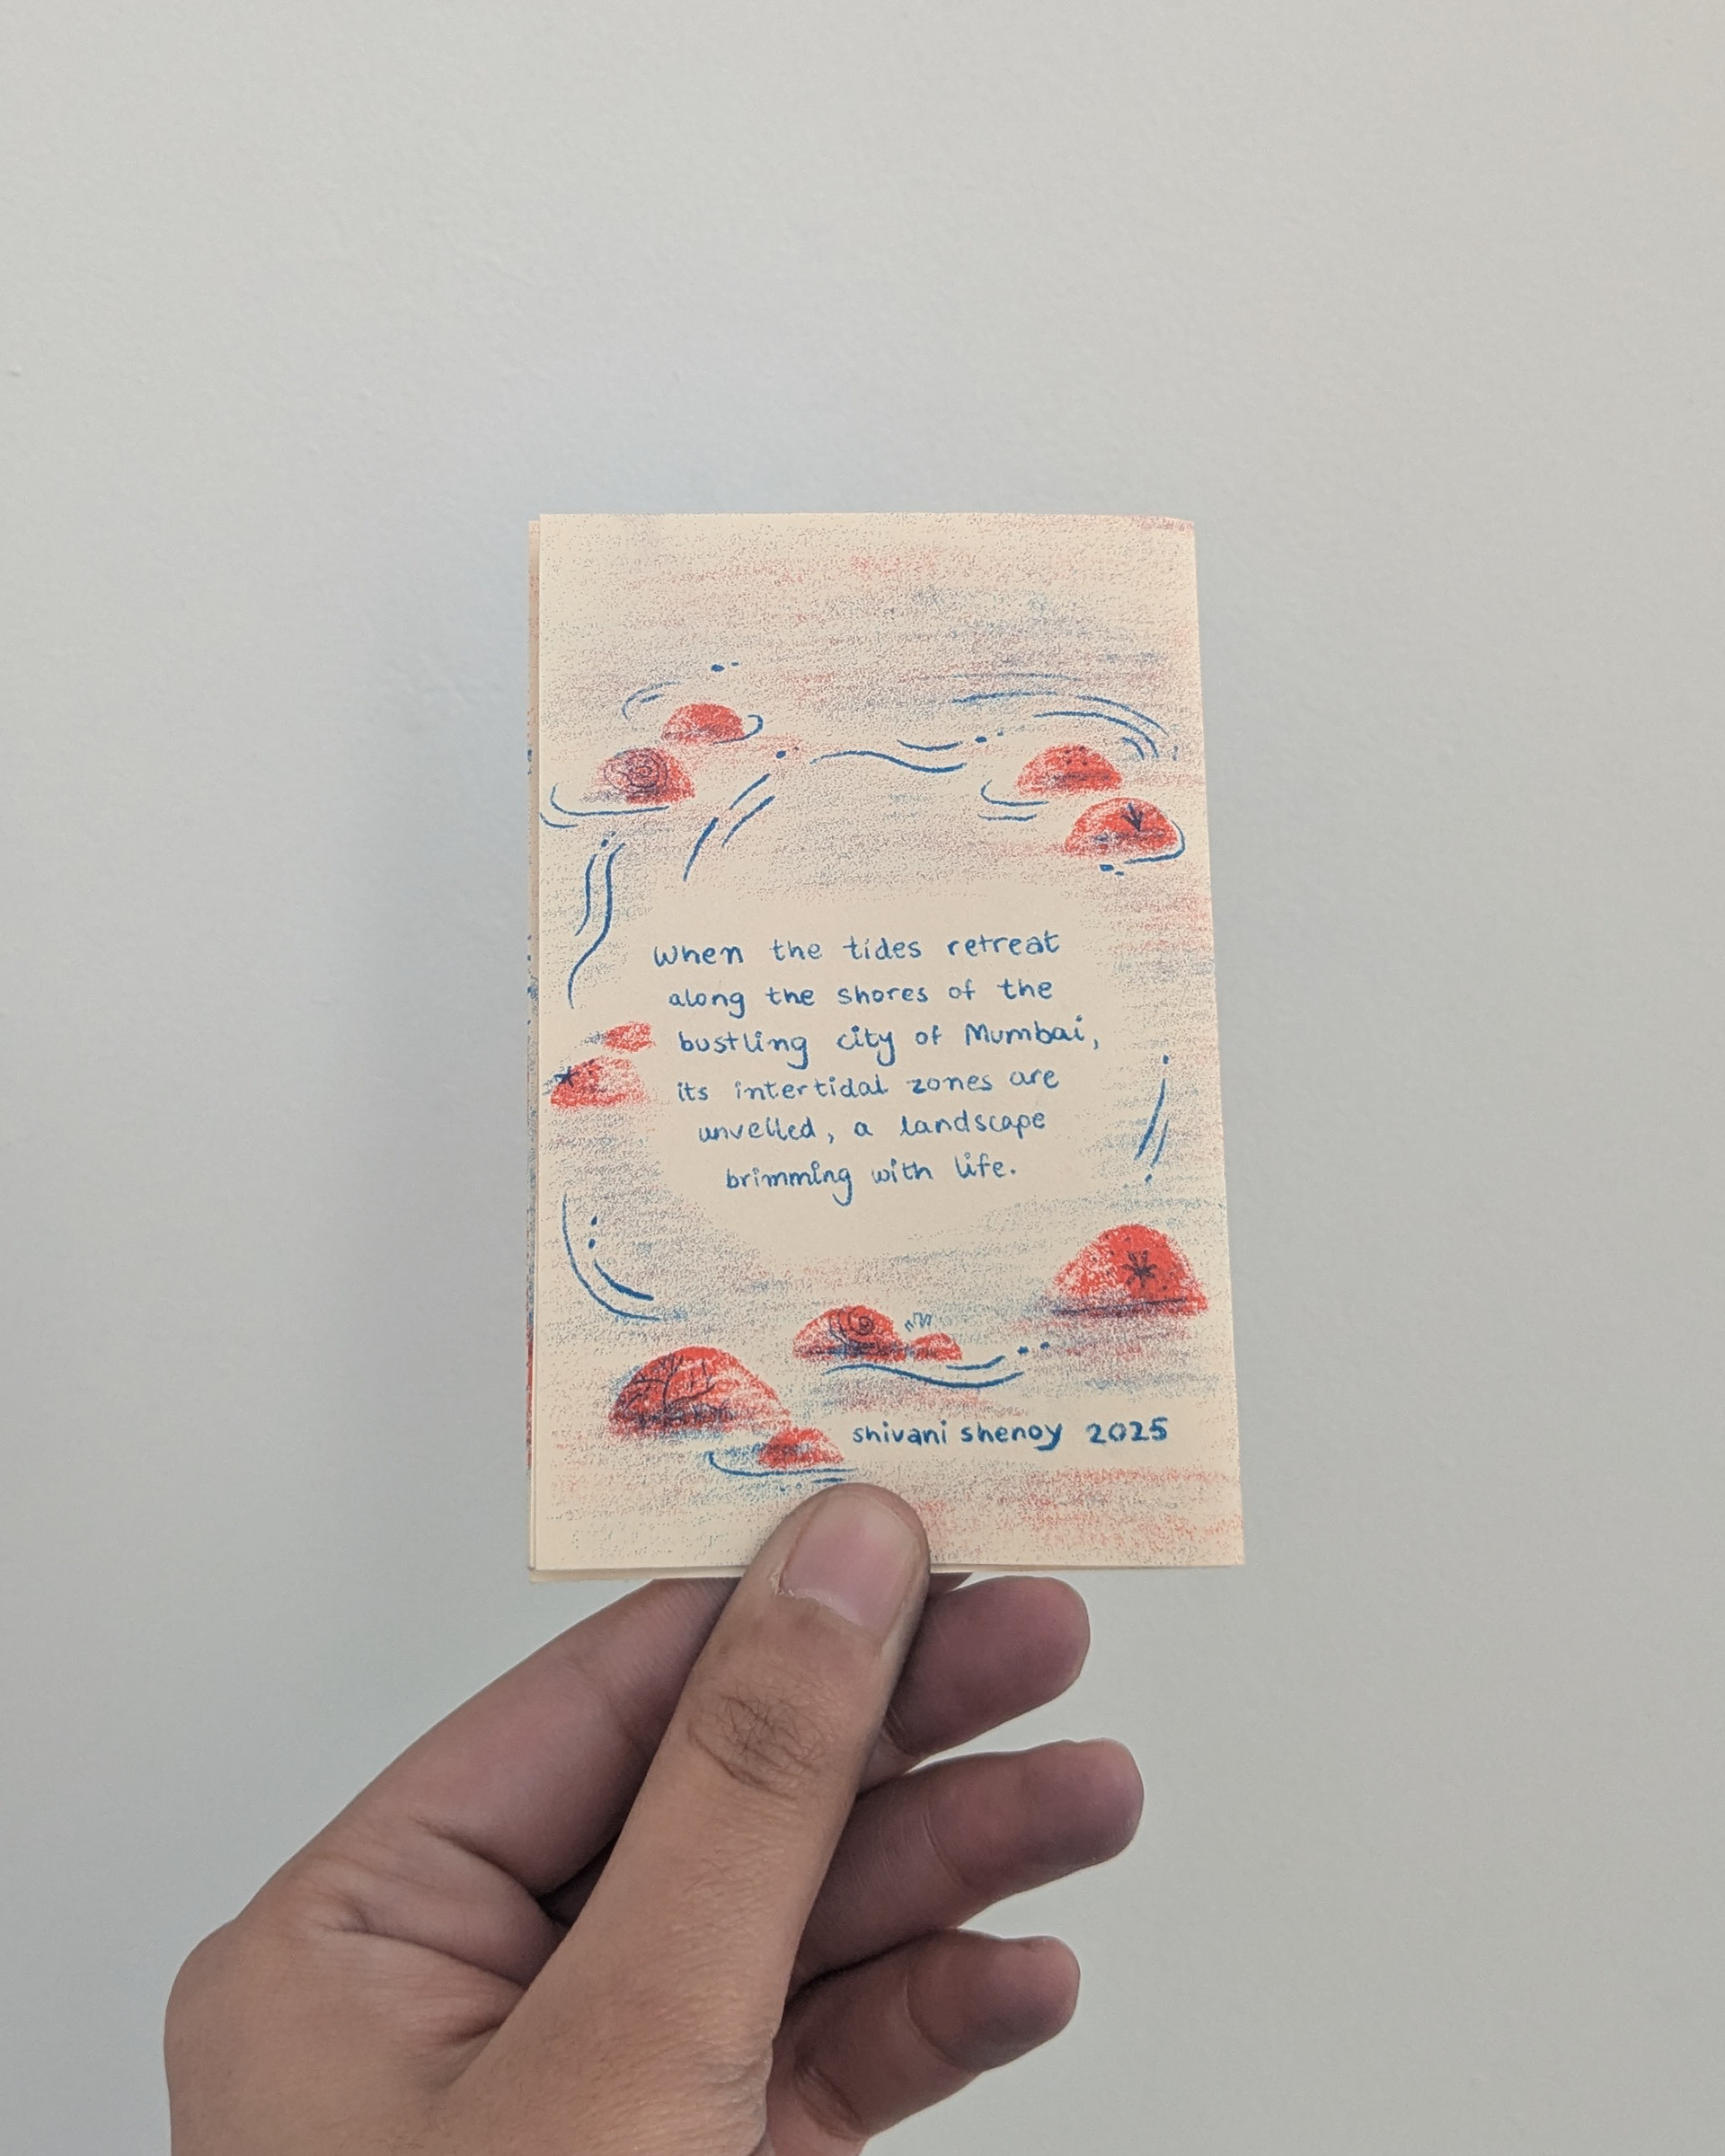 When the tides retreat
along the shores of the
bustling city of Mumbai,
its intertidal zones are
unveiled, a landscape
brimming with life.
shivani shenoy 2025